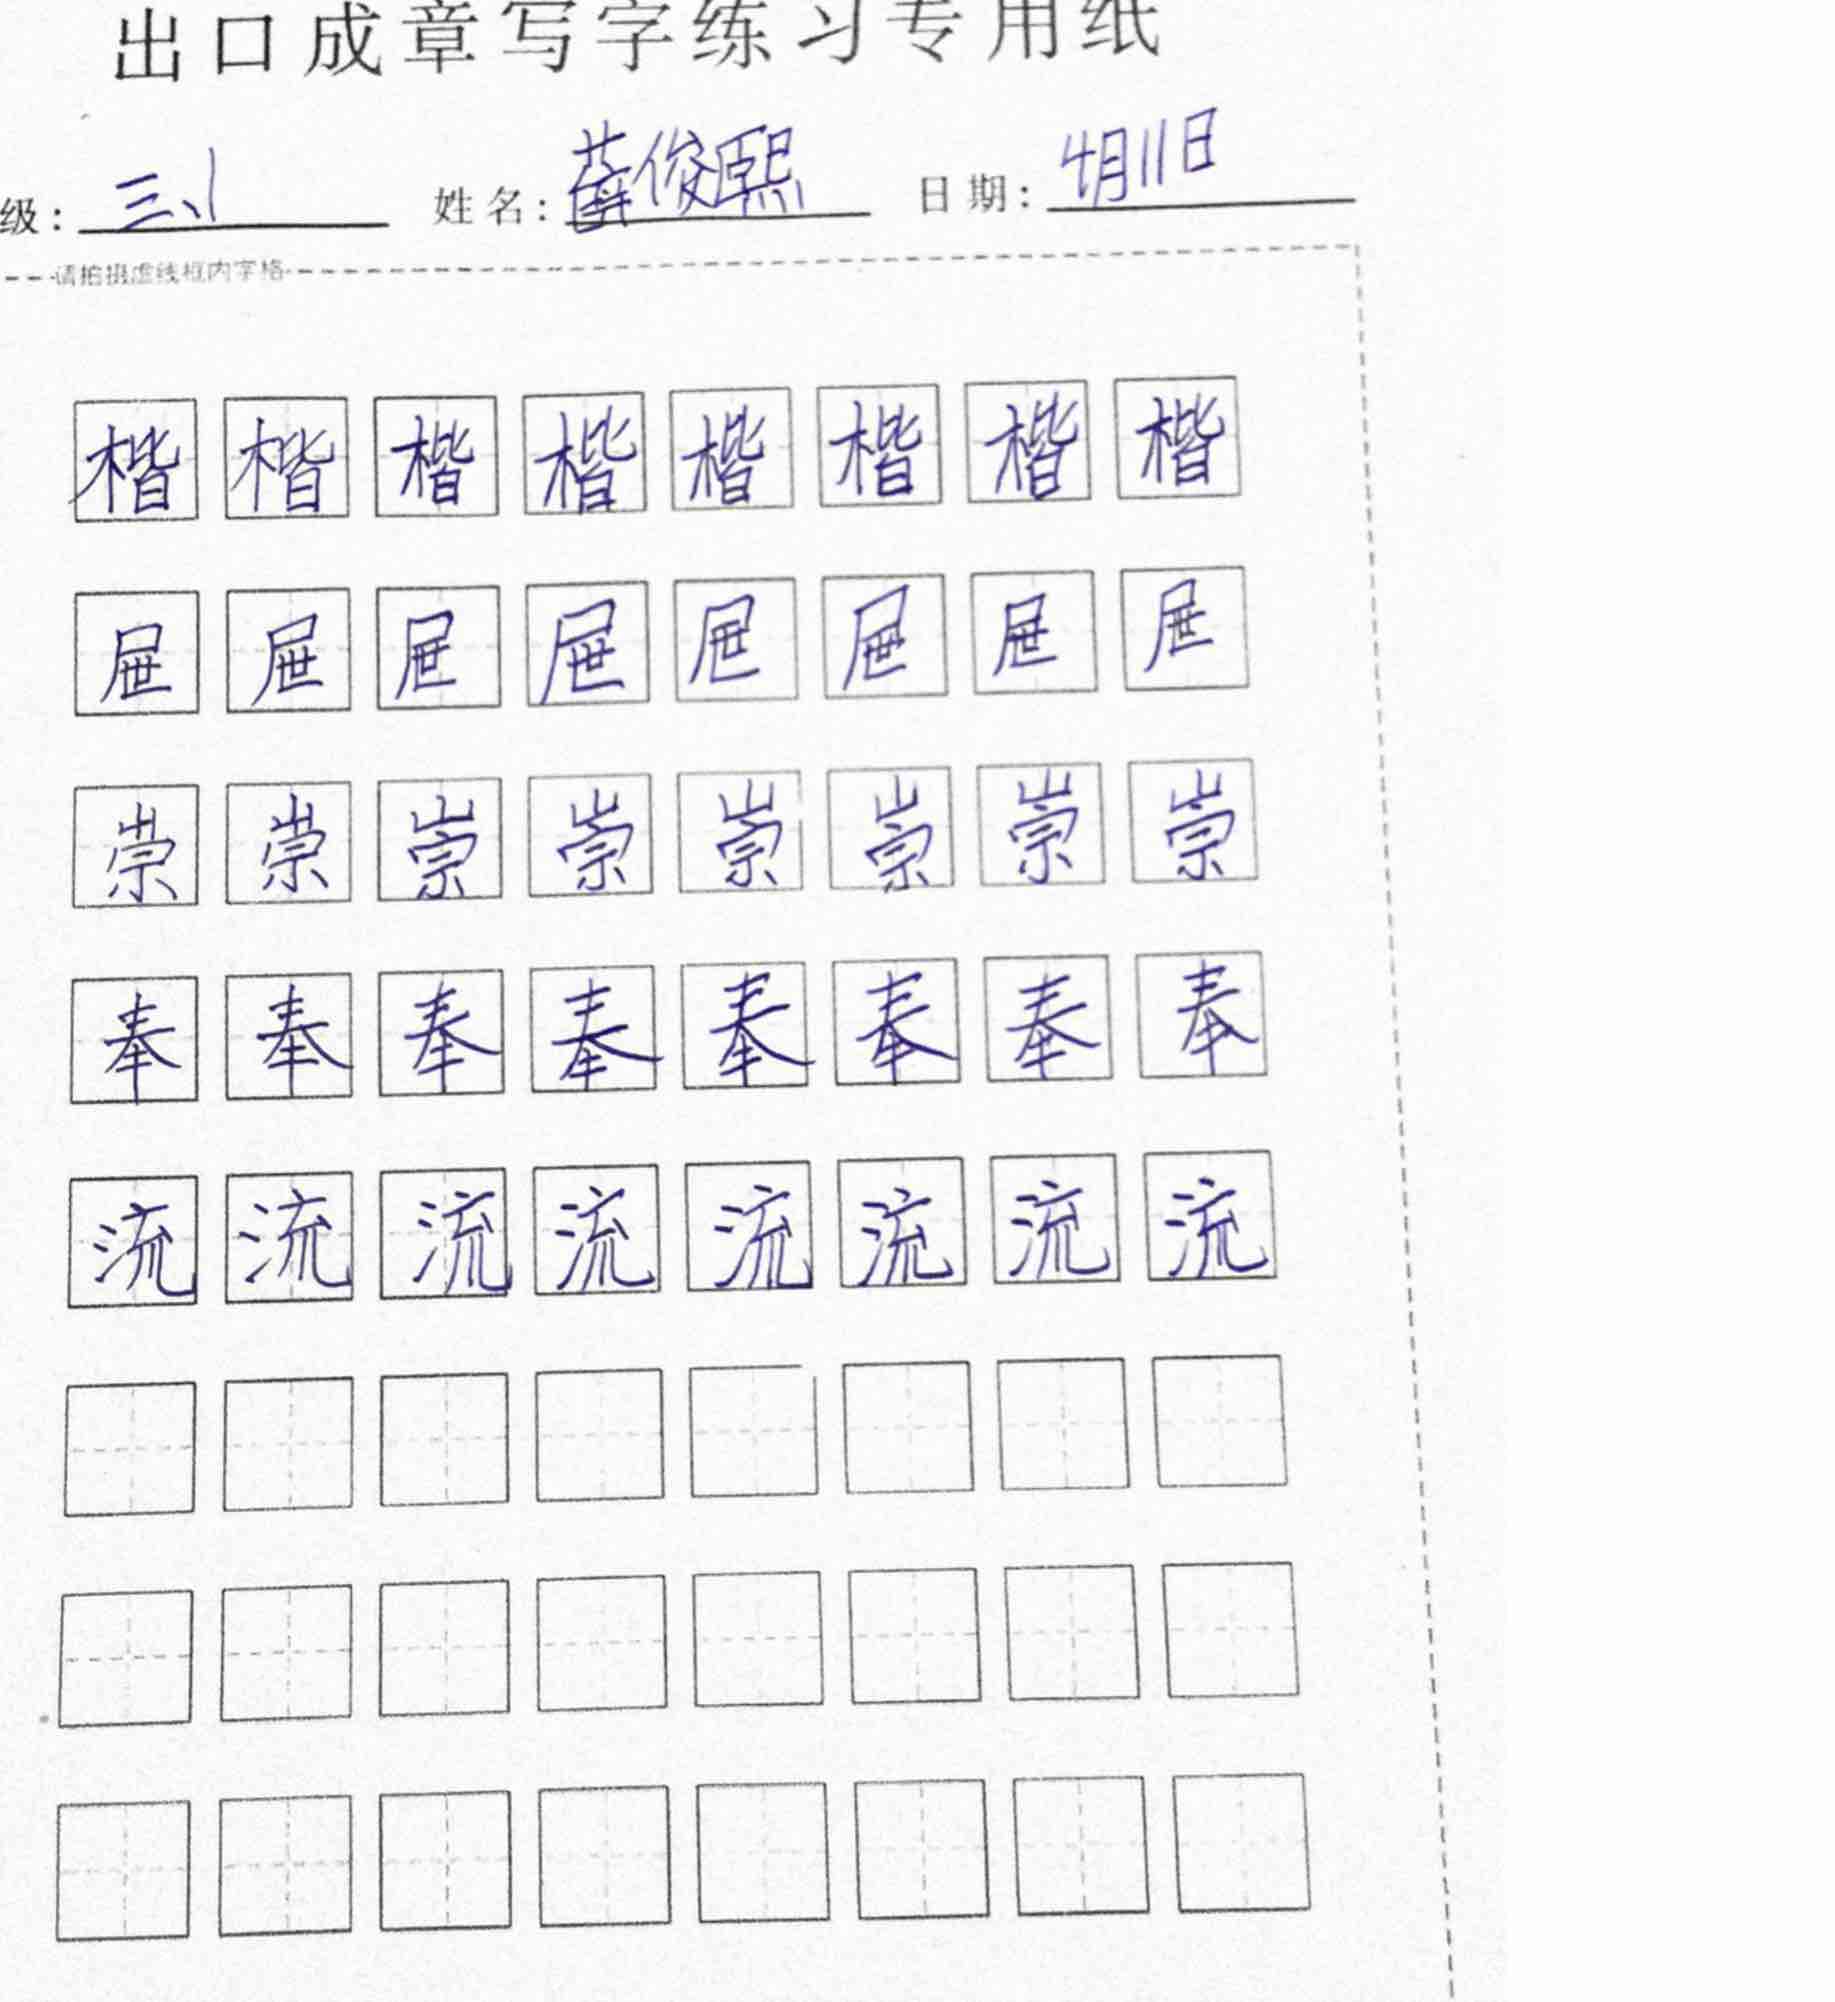 出口成章写字练习专用纸
级：三、1 姓名：薛俊熙 日期：4月11日
请拍摄虚线框内字格
楷 楷 楷 楷 楷 楷 楷 楷
屉 屉 屉 屉 屉 屉 屉 屉
崇 崇 崇 崇 崇 崇 崇 崇
奉 奉 奉 奉 奉 奉 奉 奉
流 流 流 流 流 流 流 流